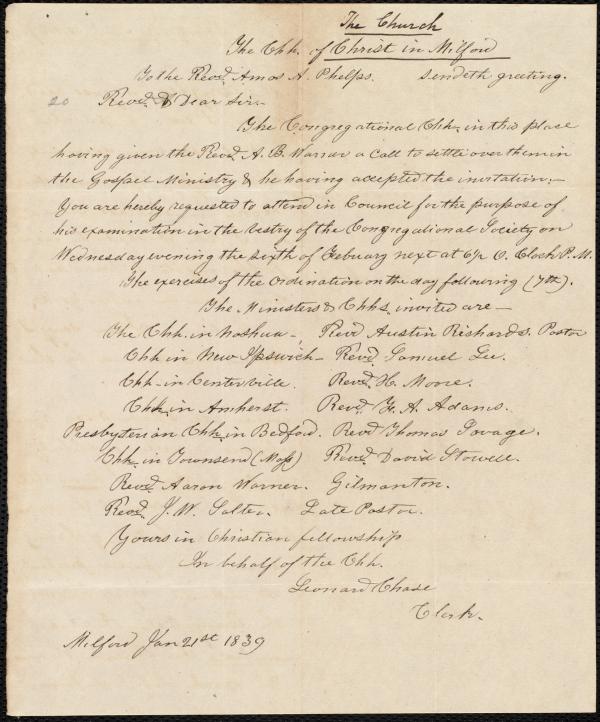 The Church
The Chh. of Christ in Milford
To the Revd. Amos A. Phelps. sendeth greeting.
20 Revd. & Dear Sir.
The Congregational Chh. in this place
having given the Revd. A. B. Warner a call to settle over them in
the Gospel Ministry & he having accepted the invitation:—
You are hereby requested to attend in Council for the purpose of
his examination in the Vestry of the Congregational Society on
Wednesday evening the sixth of February next at 6½ O. Clock P. M.
The exercises of the Ordination on the day following (7th).
The Ministers & Chhs. invited are —
The Chh. in Nashua, Revd Austin Richards. Pastor
Chh in New Ipswich — Revd. Samuel Lee.
Chh — in Centerville. Revd. H. Moore.
Chh. in Amherst. Revd. F. A. Adams.
Presbyterian Chh. in Bedford. Revd Thomas Savage.
Chh. in Townsend (Mass) Revd. David Stowell.
Revd. Aaron Warner. Gilmanton.
Revd. J. W. Salter. Late Pastor.
Yours in Christian fellowship
In behalf of the Chh.
Leonard Chase
Clerk.
Milford Jan 21st 1839